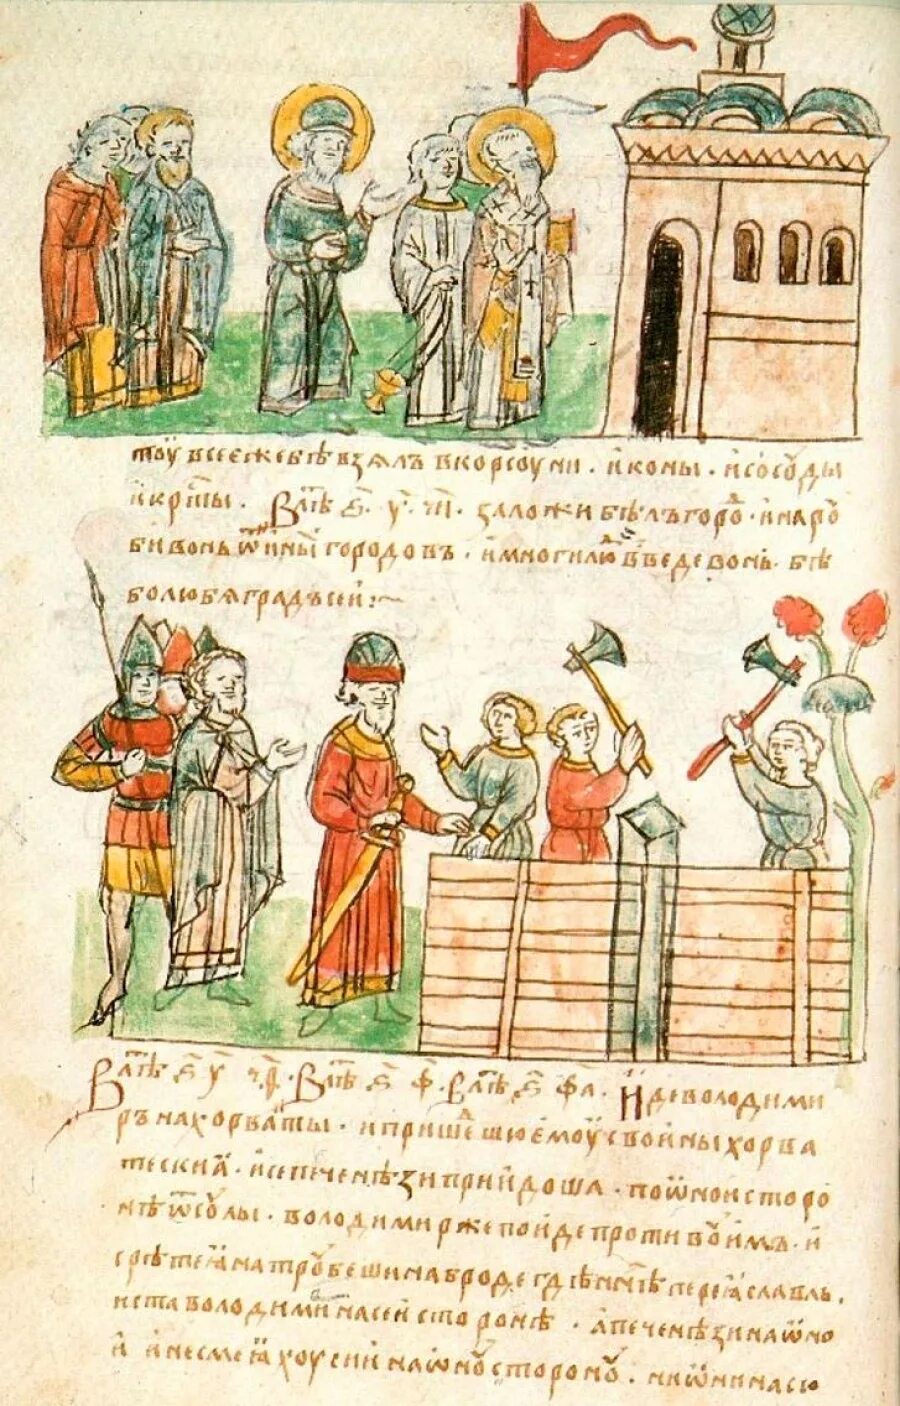 тоу все еже бѣ взялъ в корсоуни . иконы . и сосоуды
и крⷭ҇ты . В лѣⷮ ҂ѕ . у҃ . ч҃ . заложи бѣлъгороⷣ . и наро
би вонь ѿ инѣⷯ городовъ . и многи люⷣ въведе вонь . бѣ
бо любя градъ сеи :~
В лѣⷮ ҂ѕ у҃ чѳ҃ . В лѣⷮ ҂ѕ ф҃ . В лѣⷮ ҂ѕ фа҃ . Иде володими
ръ на хорваты . и пришеⷣшю емоу с воины хорва
тескиꙗ . и се печенѣзи приидоша . по ѡнои сторо
нѣ ѿ сꙋлы . володимиръ же поиде противꙋ имъ . и
срѣте ꙗ на трꙋбеши на бродѣ гдѣ нн҃ѣ переꙗславль .
и ста володимиⷬ на сеи сторонѣ . а печенѣзи на ѡно
и и не смеꙗхоу си и на ѡнꙋ сторонꙋ . ни ѡни на сю